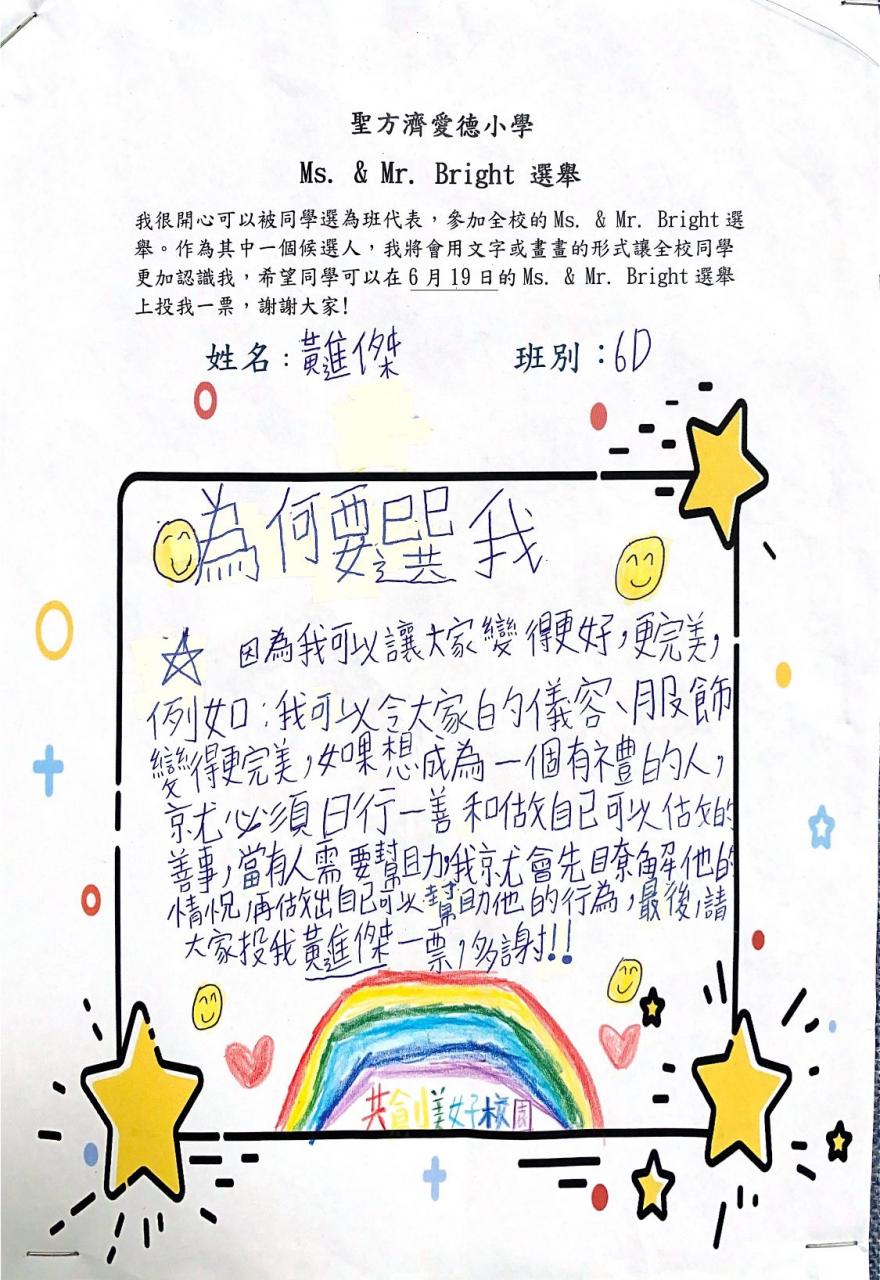 聖方濟愛德小學
Ms. & Mr. Bright 選舉
我很開心可以被同學選為班代表，參加全校的 Ms. & Mr. Bright 選
舉。作為其中一個候選人，我將會用文字或畫畫的形式讓全校同學
更加認識我，希望同學可以在 6 月 19 日的 Ms. & Mr. Bright 選舉
上投我一票，謝謝大家!
姓名：黃進傑 班別：6D
為何要選我
因為我可以讓大家變得更好，更完美，
例如：我可以令大家的儀容、服飾
變得更完美，如果想成為一個有禮的人，
就必須日行一善和做自己可以做的
善事，當有人需要幫助，我就會先瞭解他的
情況，再做出自己可以幫助他的行為，最後，請
大家投我黃進傑一票，多謝!!
共創美好校園